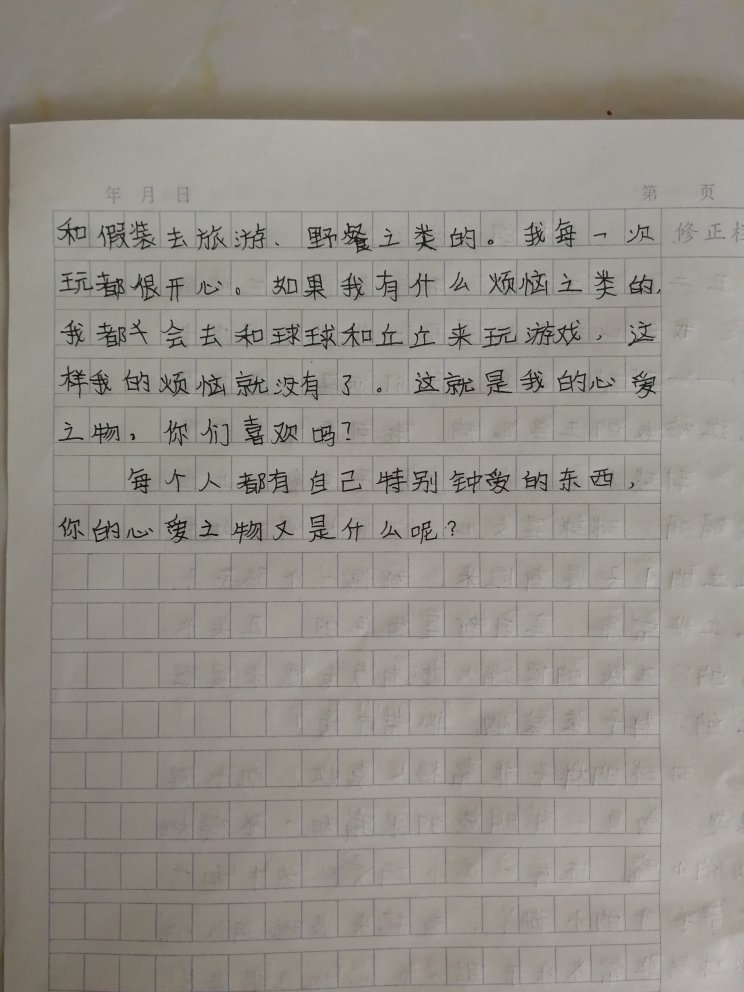 年 月 日
第 页
和假装去旅游、野餐之类的。我每一次
修正栏
玩都很开心。如果我有什么烦恼之类的,
我都会去和球球和丘丘来玩游戏,这
样我的烦恼就没有了。这就是我的心爱
之物,你们喜欢吗?
每个人都有自己特别钟爱的东西,
你的心爱之物又是什么呢?